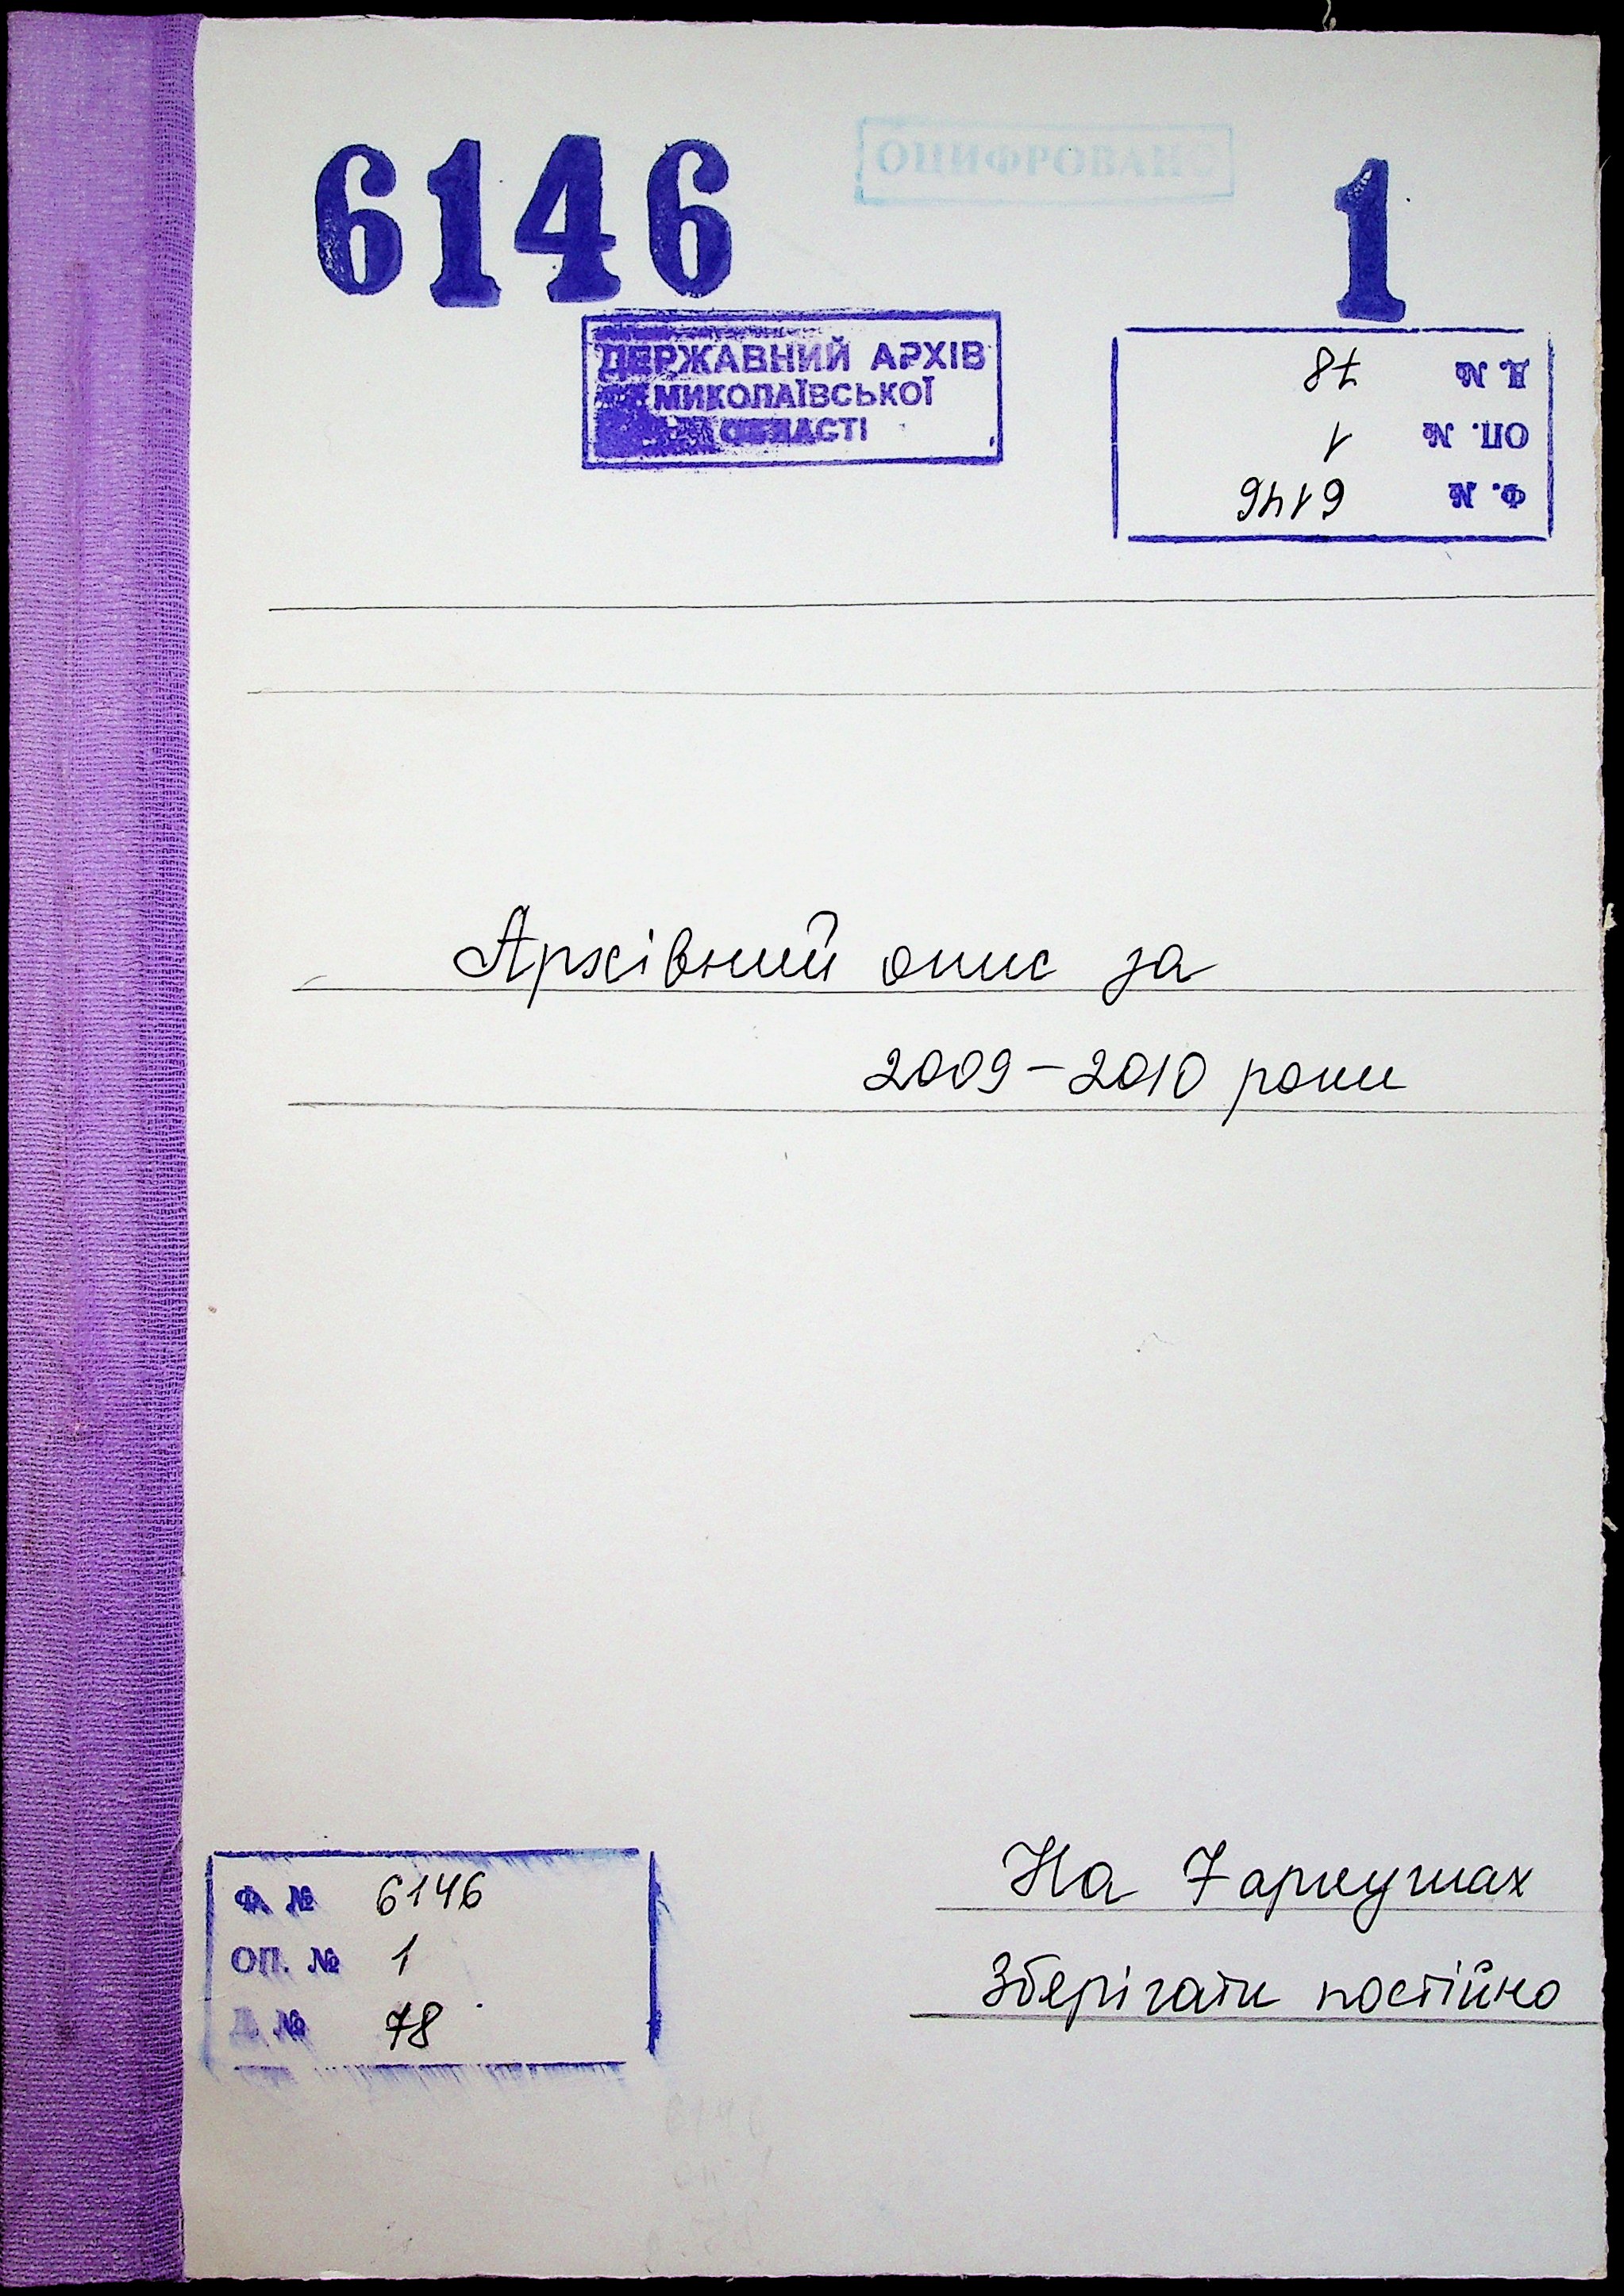 6146
ОЦИФРОВАНО
1
ДЕРЖАВНИЙ АРХІВ
МИКОЛАЇВСЬКОЇ
ОБЛАСТІ
Ф. № 6146
ОП. № 1
Д. № 78
Архівний опис за
2009–2010 роки
На 7 аркушах
Зберігати постійно
Ф. № 6146
ОП. № 1
Д. № 78